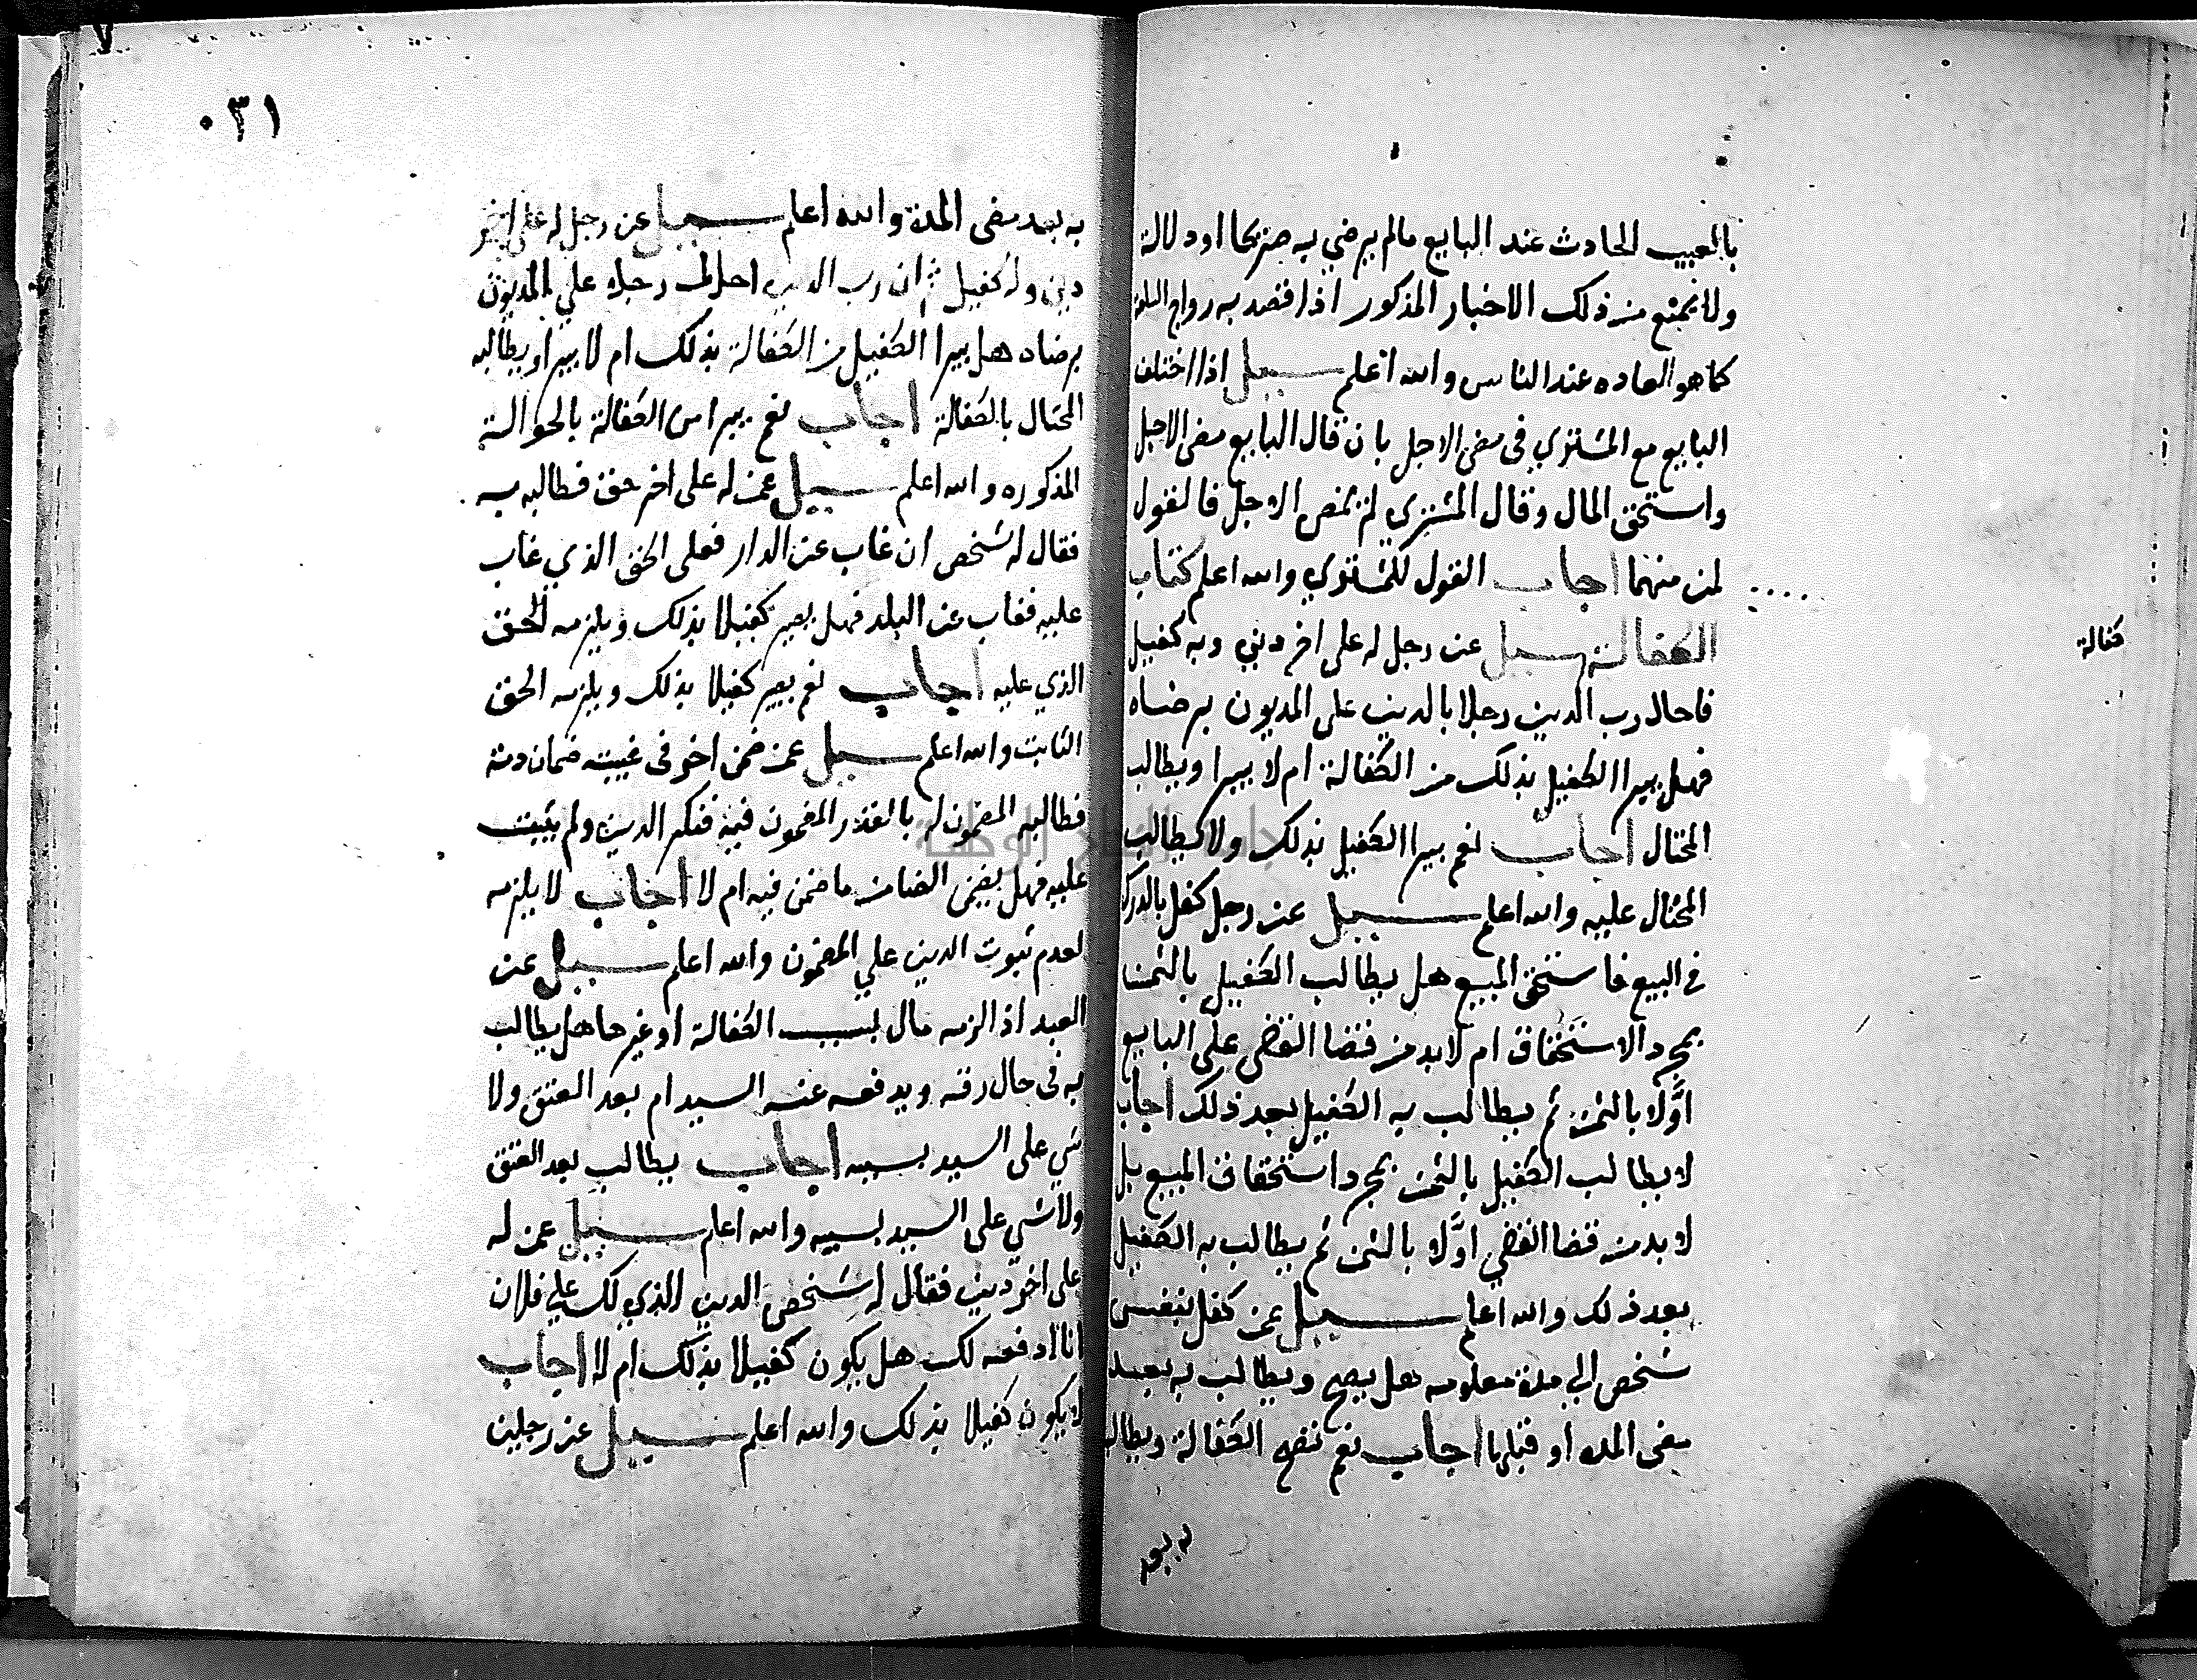 بالعيب الحادث عند البايع مالم يرضي به صريحا او دلالة
ولا يمنع من ذلك الاخبار المذكور اذا قصد به رواج السلعة
كما هو العاده عند الناس والله اعلم سيل اذا اختلف
البايع مع المشتري في مضى الاجل بان قال البايع مضى الاجل
واستحق المال وقال المشتري لم يمض الاجل فالقول
لمن منهما اجاب القول للمشتري والله اعلم كتاب
الكفالة سيل عن رجل له على اخر دين وبه كفيل
كفالة
فاحال رب الدين رجلا بالدين على المديون برضاه
فهل يبرا الكفيل بذلك من الكفالة ام لا يبرا ويطالب
المحتال اجاب نعم يبرا الكفيل بذلك ولا يطالب
المحتال عليه والله اعلم سيل عن رجل كفل بالدرك
في البيع فاستحق المبيع هل يطالب الكفيل بالثمن
بمجرد الاستحقاق ام لابد من قضا القضي على البايع
اولا بالثمن ثم يطالب به الكفيل بعد ذلك اجاب
لا يطالب الكفيل بالثمن بمجرد استحقاق المبيع بل
لابد من قضا القضي اولا بالثمن ثم يطالب به الكفيل
بعد ذلك والله اعلم سيل عمن كفل بنفس
شخص الي مدة معلومه هل يصح ويطالب به بعد
مضى المده او قبلها اجاب نعم تصح الكفالة ويطالب
به بعد
٠٣١
به بعد مضى المدة والله اعلم سيل عن رجل له على اخر
دين وله كفيل ثم ان رب الدين احال رجلا علي المديون
برضاه هل يبرا الكفيل من الكفالة بذلك ام لا يبرا ويطالبه
المحتال بالكفالة اجاب نعم يبرا من الكفالة بالحوالة
المذكوره والله اعلم سيل عمن له على اخر حق فطالبه به
فقال له شخص ان غاب عن الدار فعلى الحق الذي غاب
عليه فغاب عن البلد فهل يصير كفيلا بذلك ويلزمه الحق
الذي عليه اجاب نعم يصير كفيلا بذلك ويلزمه الحق
الثابت والله اعلم سيل عمن ضمن اخر في غيبته ضمان دمة
فطالبه المضمون له بالقدر المضمون فيه فنكر الدين ولم يثبت
عليه فهل يضمن الضامن ما ضمن فيه ام لا اجاب لا يلزمه
لعدم ثبوت الدين علي المضمون والله اعلم سيل عن
العبد اذا لزمه مال بسبب الكفالة او غيرها هل يطالب
به في حال رقه ويدفعه عنه السيد ام بعد العتق ولا
شي على السيد بسببه اجاب يطالب بعد العتق
ولا شي على السيد بسببه والله اعلم سيل عمن له
على اخر دين فقال له شخص الدين الذي لك علي فلان
انا ادفعه لك هل يكون كفيلا بذلك ام لا اجاب
لا يكون كفيلا بذلك والله اعلم سيل عن رجلين